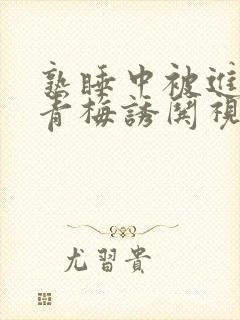 熟睡中被進
青梅誘関視
尤習貴